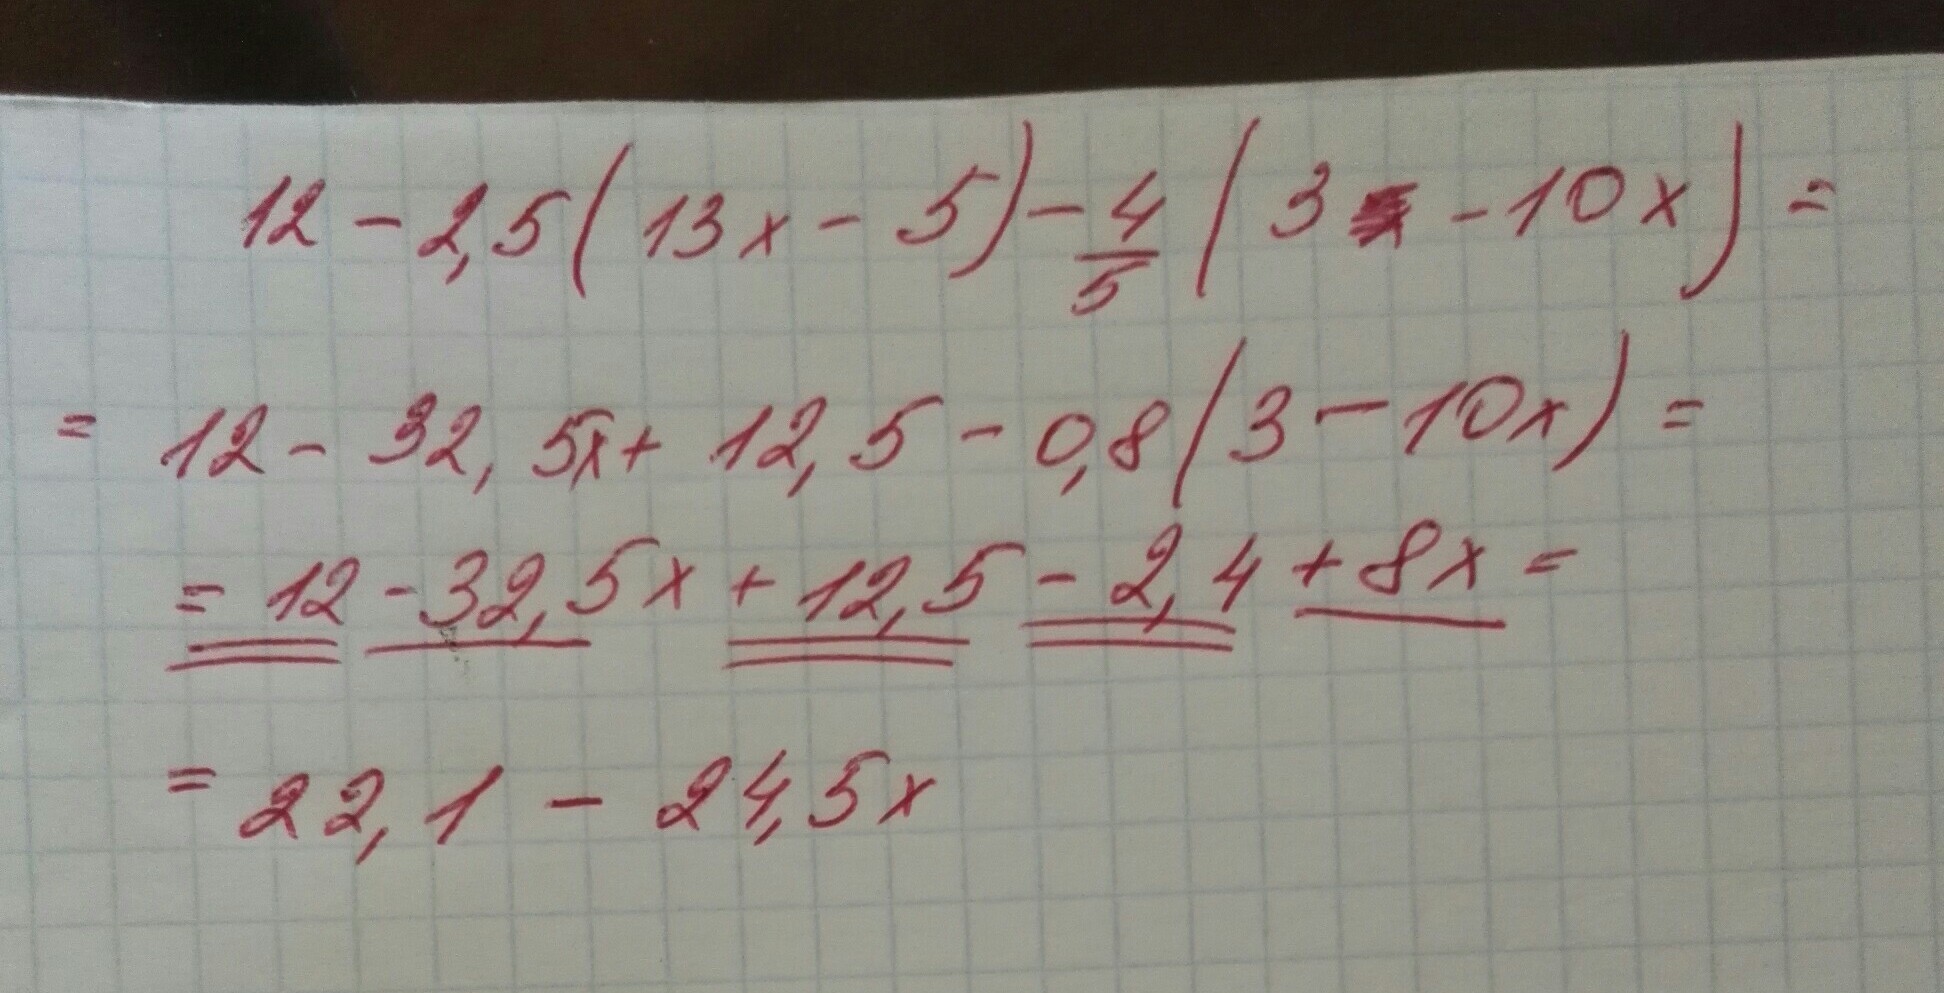 12 - 2,5(13x - 5) - 4/5 (3 - 10x) =
= 12 - 32,5x + 12,5 - 0,8(3 - 10x) =
= 12 - 32,5x + 12,5 - 2,4 + 8x =
= 22,1 - 24,5x